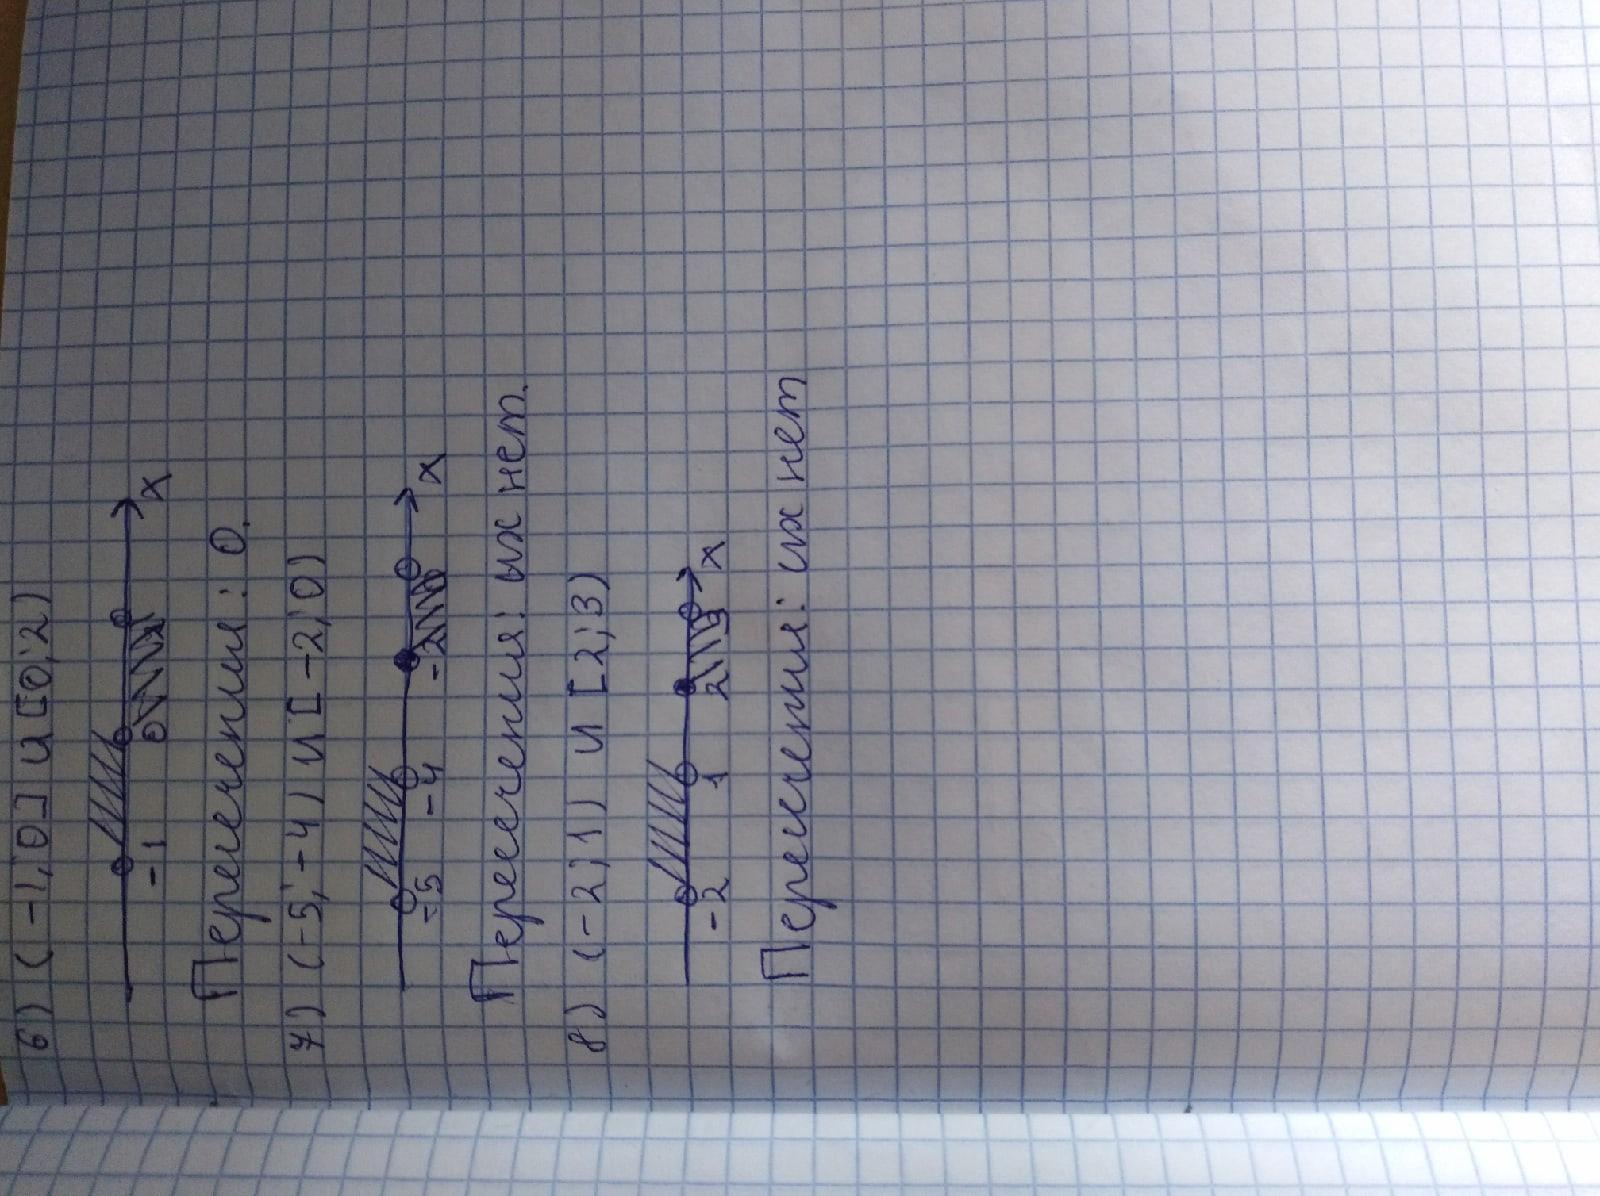 6) (-1; 0] и [0; 2)
-1 0 2 x
Пересечения: 0.
7) (-5; -4) и [-2; 0)
-5 -4 -2 0 x
Пересечения: их нет.
8) (-2; 1) и [2; 3)
-2 1 2 3 x
Пересечения: их нет